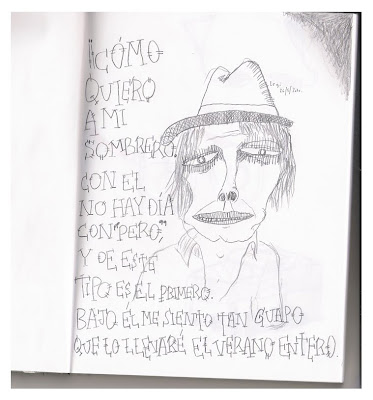 ¡¡CÓMO
QUIERO
A MI
SOMBRERO.
CON EL
NO HAY DÍA
CON "PERO",
Y DE ESTE
TIPO ES EL PRIMERO.
BAJO ÉL ME SIENTO TAN GUAPO
QUE LO LLEVARÉ EL VERANO ENTERO.